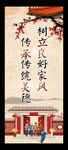 树立良好家风
传承传统美德